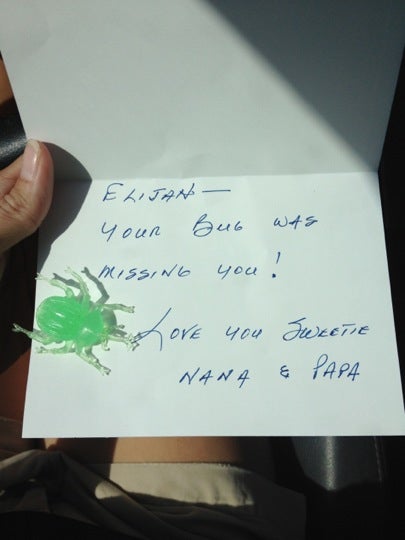 ELIJAH —
YOUR BUG WAS
MISSING YOU!
LOVE YOU SWEETIE
NANA & PAPA